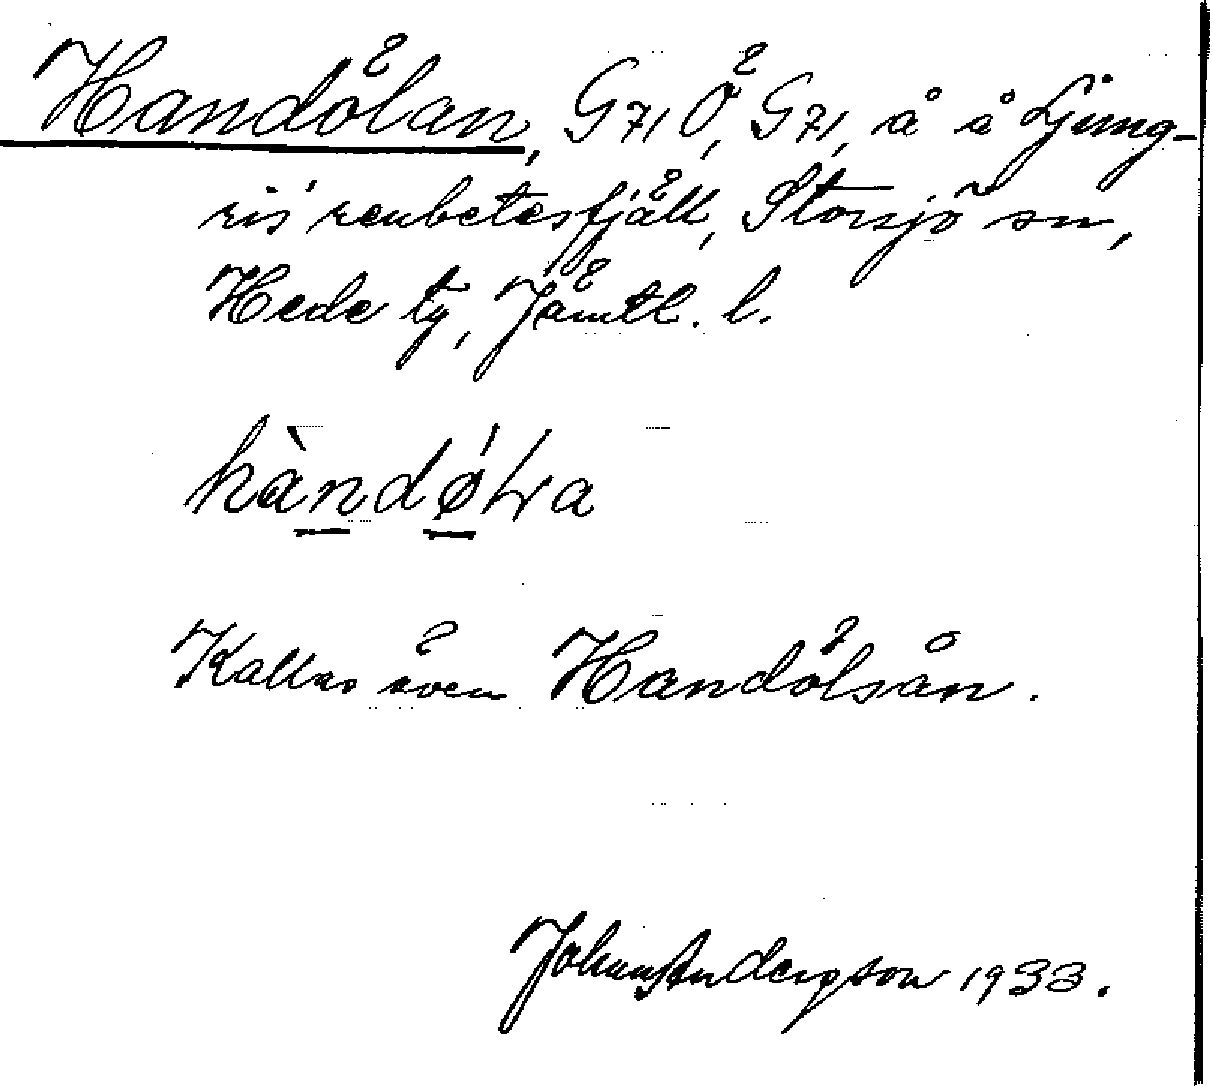 Handölan, G71Ö, G71, å å Ljung-
ris renbetesfjäll, Storsjö sn,
Hede tg, Jämtl. l.
hàndø̀ɫa
Kallas även Handölsån.
Johan Andersson 1933.